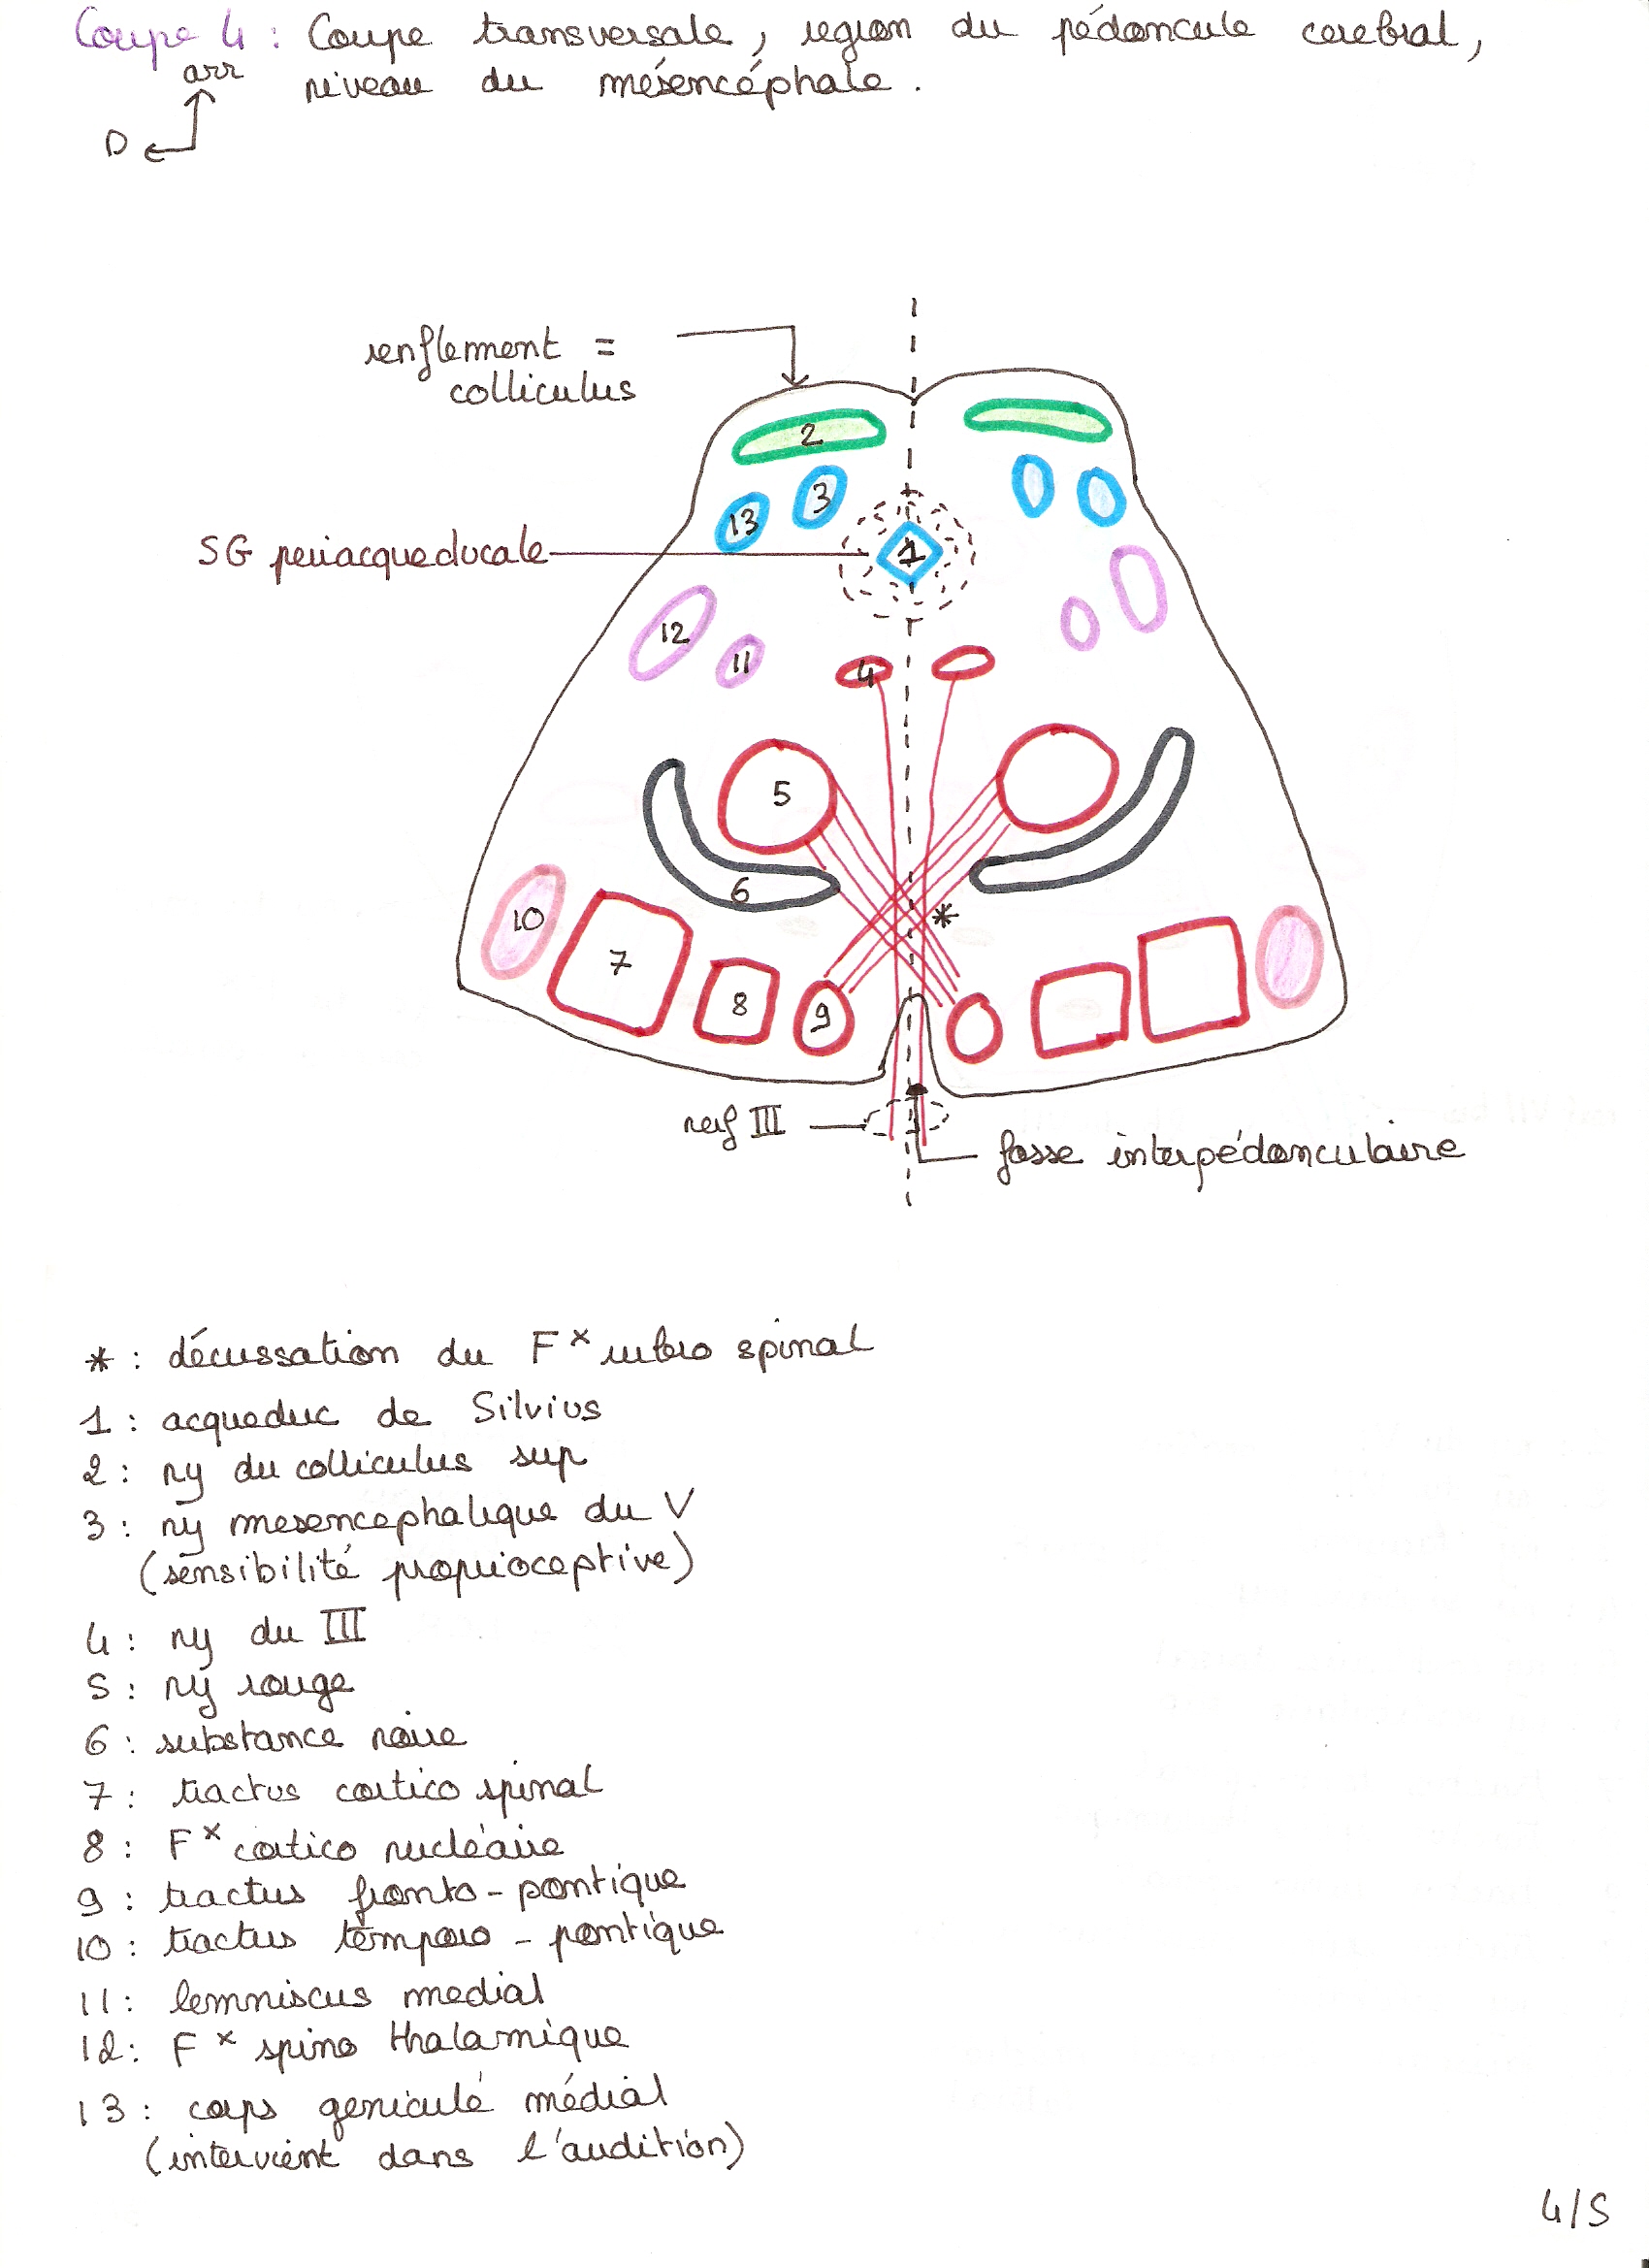 Coupe 4 : Coupe transversale, region du pédoncule cerebral,
arr
niveau du mésencéphale.
D
renflement =
colliculus
2
3
13
SG periacqueducale
1
12
11
4
5
6
*
10
7
8
9
nerf III
fosse interpédonculaire
* : décussation du Fx rubro spinal
1 : acqueduc de Silvius
2 : ny du colliculus sup
3 : ny mesencephalique du V
(sensibilité proprioceptive)
4 : ny du III
5 : ny rouge
6 : substance noire
7 : tractus cortico spinal
8 : Fx cortico nucléaire
9 : tractus fronto-pontique
10 : tractus temporo-pontique
11 : lemniscus medial
12 : Fx spino thalamique
13 : corps geniculé médial
(intervient dans l'audition)
4/5